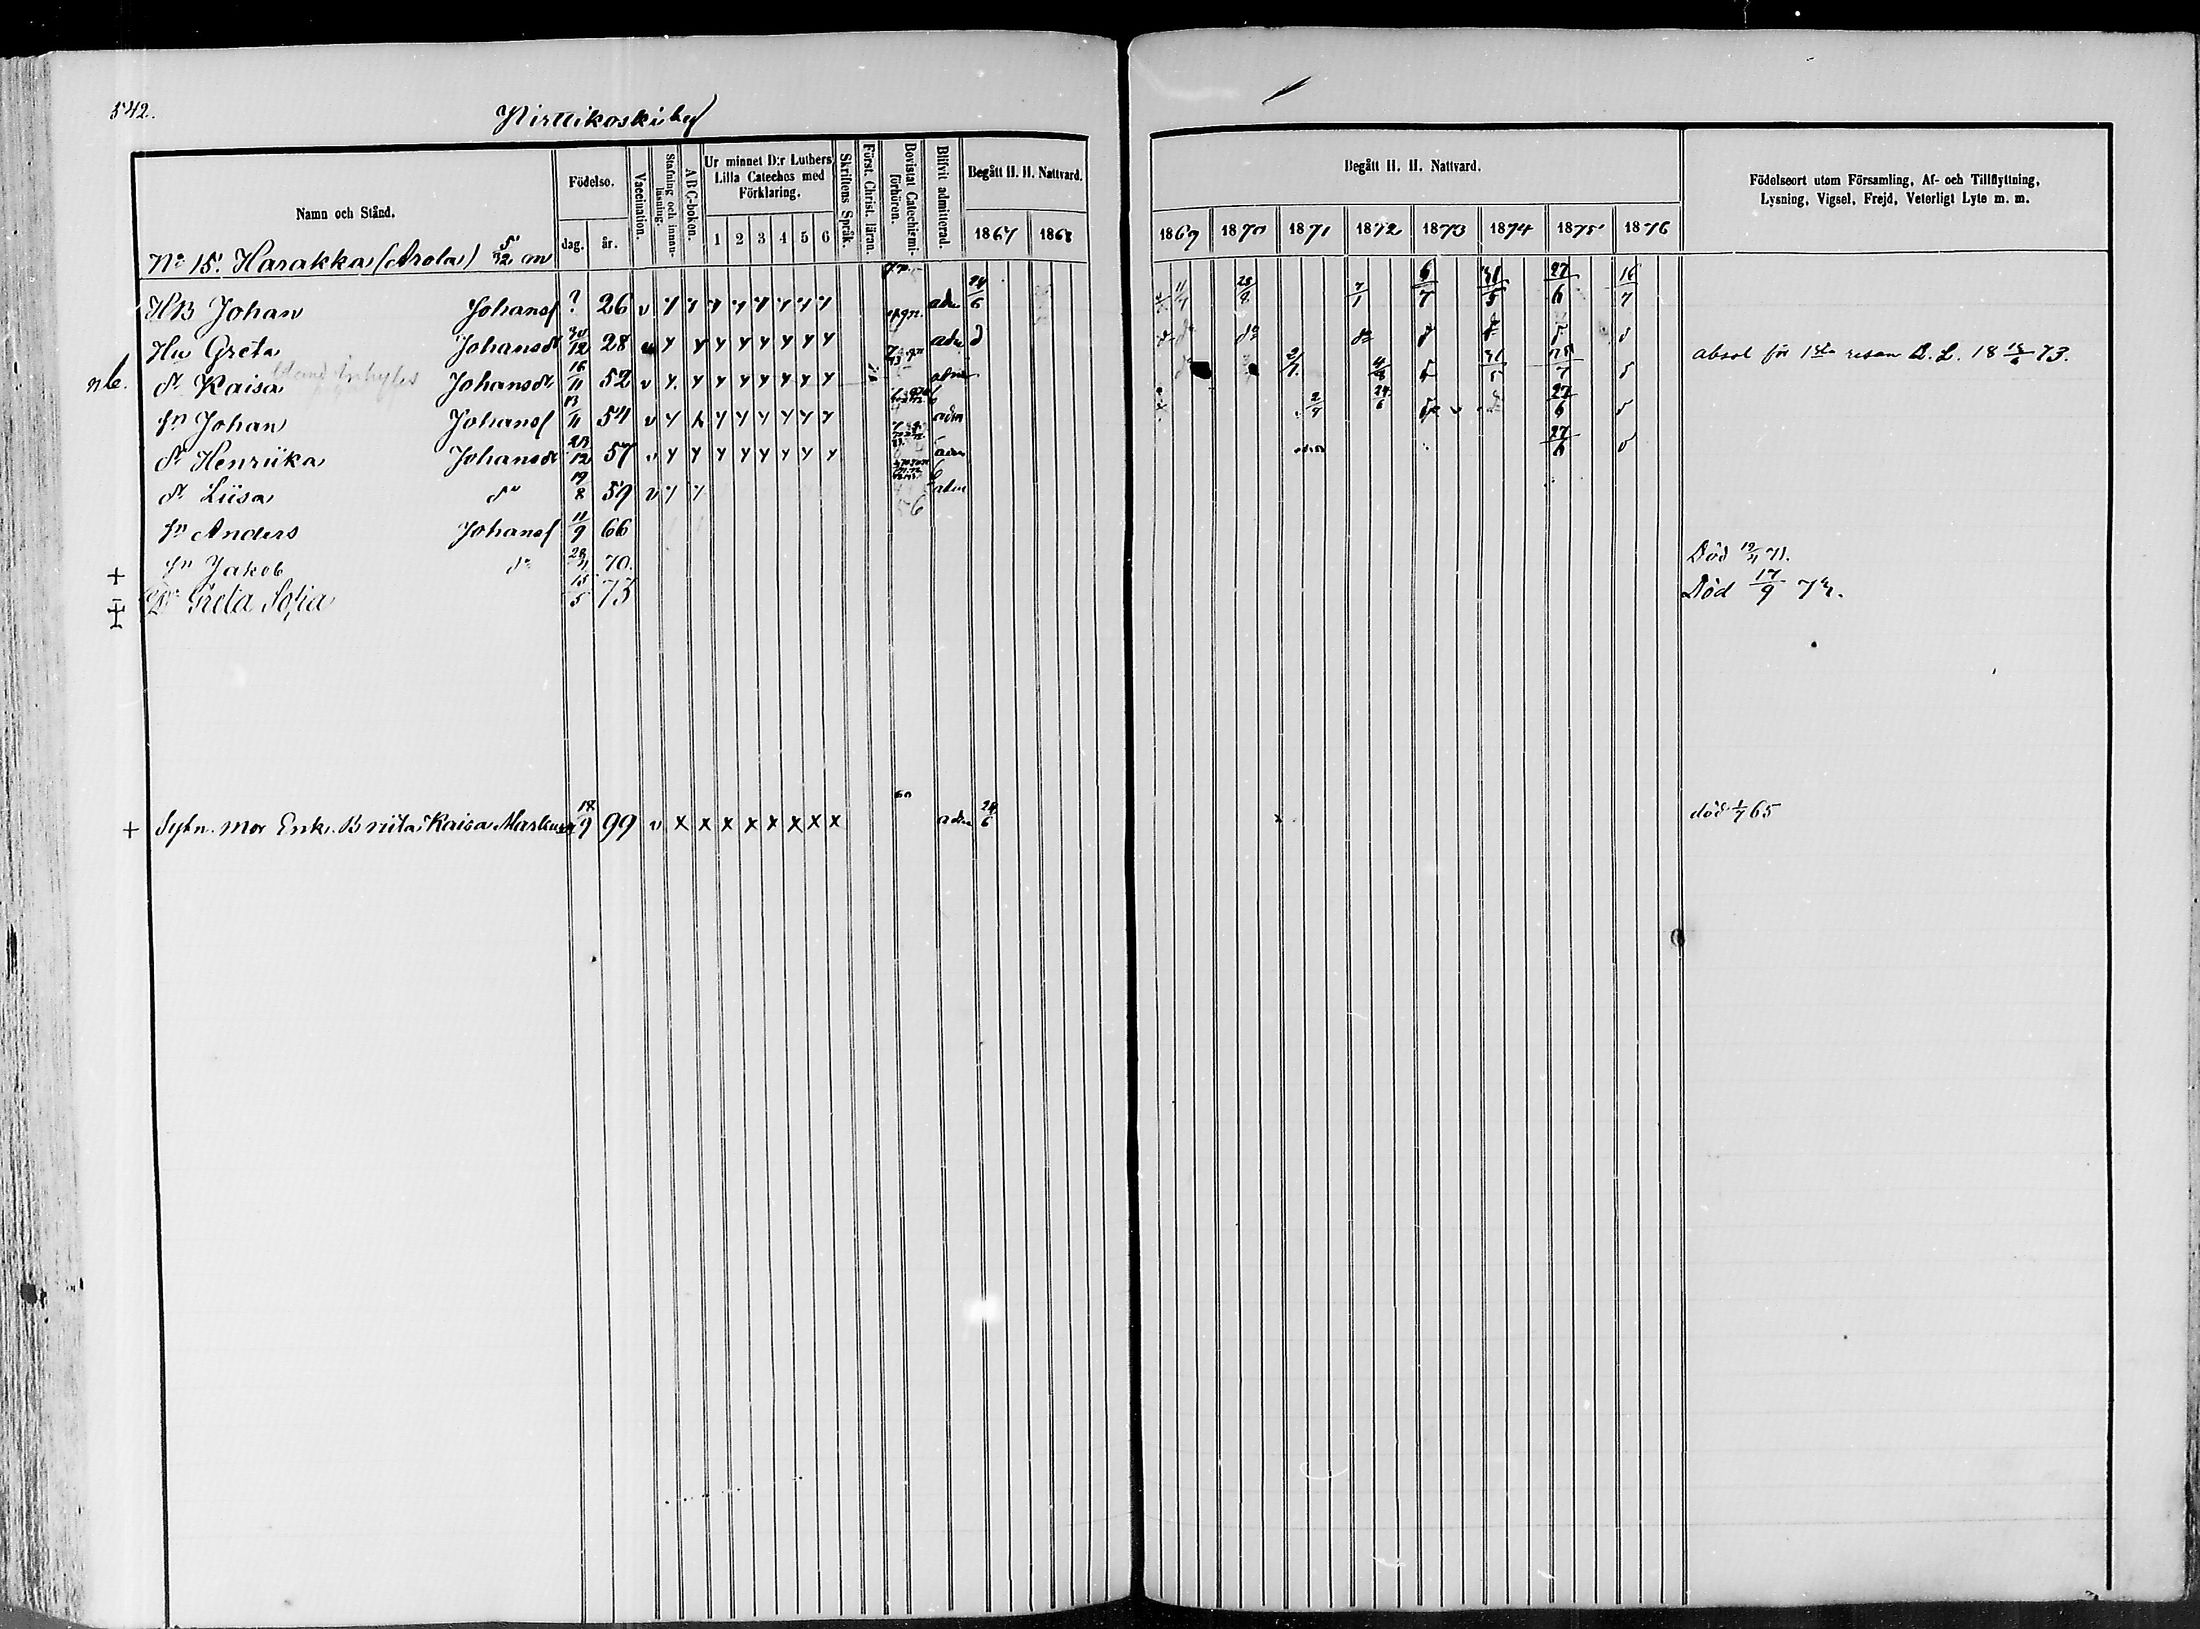 542.
Pirttikoski by
Namn och Stånd.
Födelse.
dag. år.
Vaccination.
Stafning och innan-läsning.
ABC-boken.
Ur minnet D:r Luthers Lilla Cateches med Förklaring.
1 2 3 4 5 6
Skriftens Språk.
Först. Christ. läran.
Bevistat Catechismi-förhören.
Blifvit admitterad.
Begått H. H. Nattvard.
1867 1868
Begått H. H. Nattvard.
1869 1870 1871 1872 1873 1874 1875 1876
Födelseort utom Församling, Af- och Tillflyttning,
Lysning, Vigsel, Frejd, Veterligt Lyte m. m.
No 15. Harakka (Arola) 5/32 m
HB Johan Johansf ? 26 v adm 24/6 28/8 7/1 6/7 31/5 27/6 16/7
Hu Greta Johansdr 30/12 28 adm d
nb. dr Kaisa Johansdr 16/11 52 v adm 2/7 4/8 31/5 absol för 1sta resan L. L. 18 73.
sn Johan Johansf 13/11 54 v adm 2/7 24/6 27/6
dr Henriika Johansdr 23/12 57 v adm 27/6
dr Liisa do 19/8 59 v adm
sn Anders Johansf 11/9 66
+ sn Jakob do 70. Död 71.
+ Dr Greta Sofia 15/5 73 Död 17/9
+ Sytn. mor Enk. Briita Kaisa 18/9 99 v x x x x x x x x adm 24/6 död 1/7 65